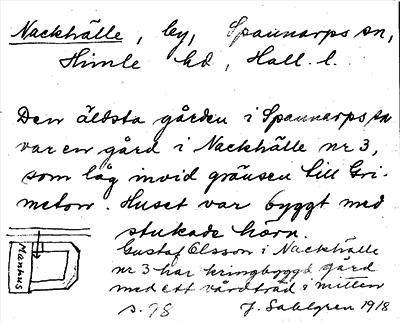 Nackhälle, by, Spannarps sn,
Himle hd, Hall. l.
Den äldsta gården i Spannarps sn
var en gård i Nackhälle nr 3,
som låg invid gränsen till Gri-
meton. Huset var byggt med
stukade hörn.
Gustaf Olsson i Nackhälle
nr 3 har kringbyggd gård
med ett vårdträd i mitten
Manhus
s. 98 J. Sahlgren 1918